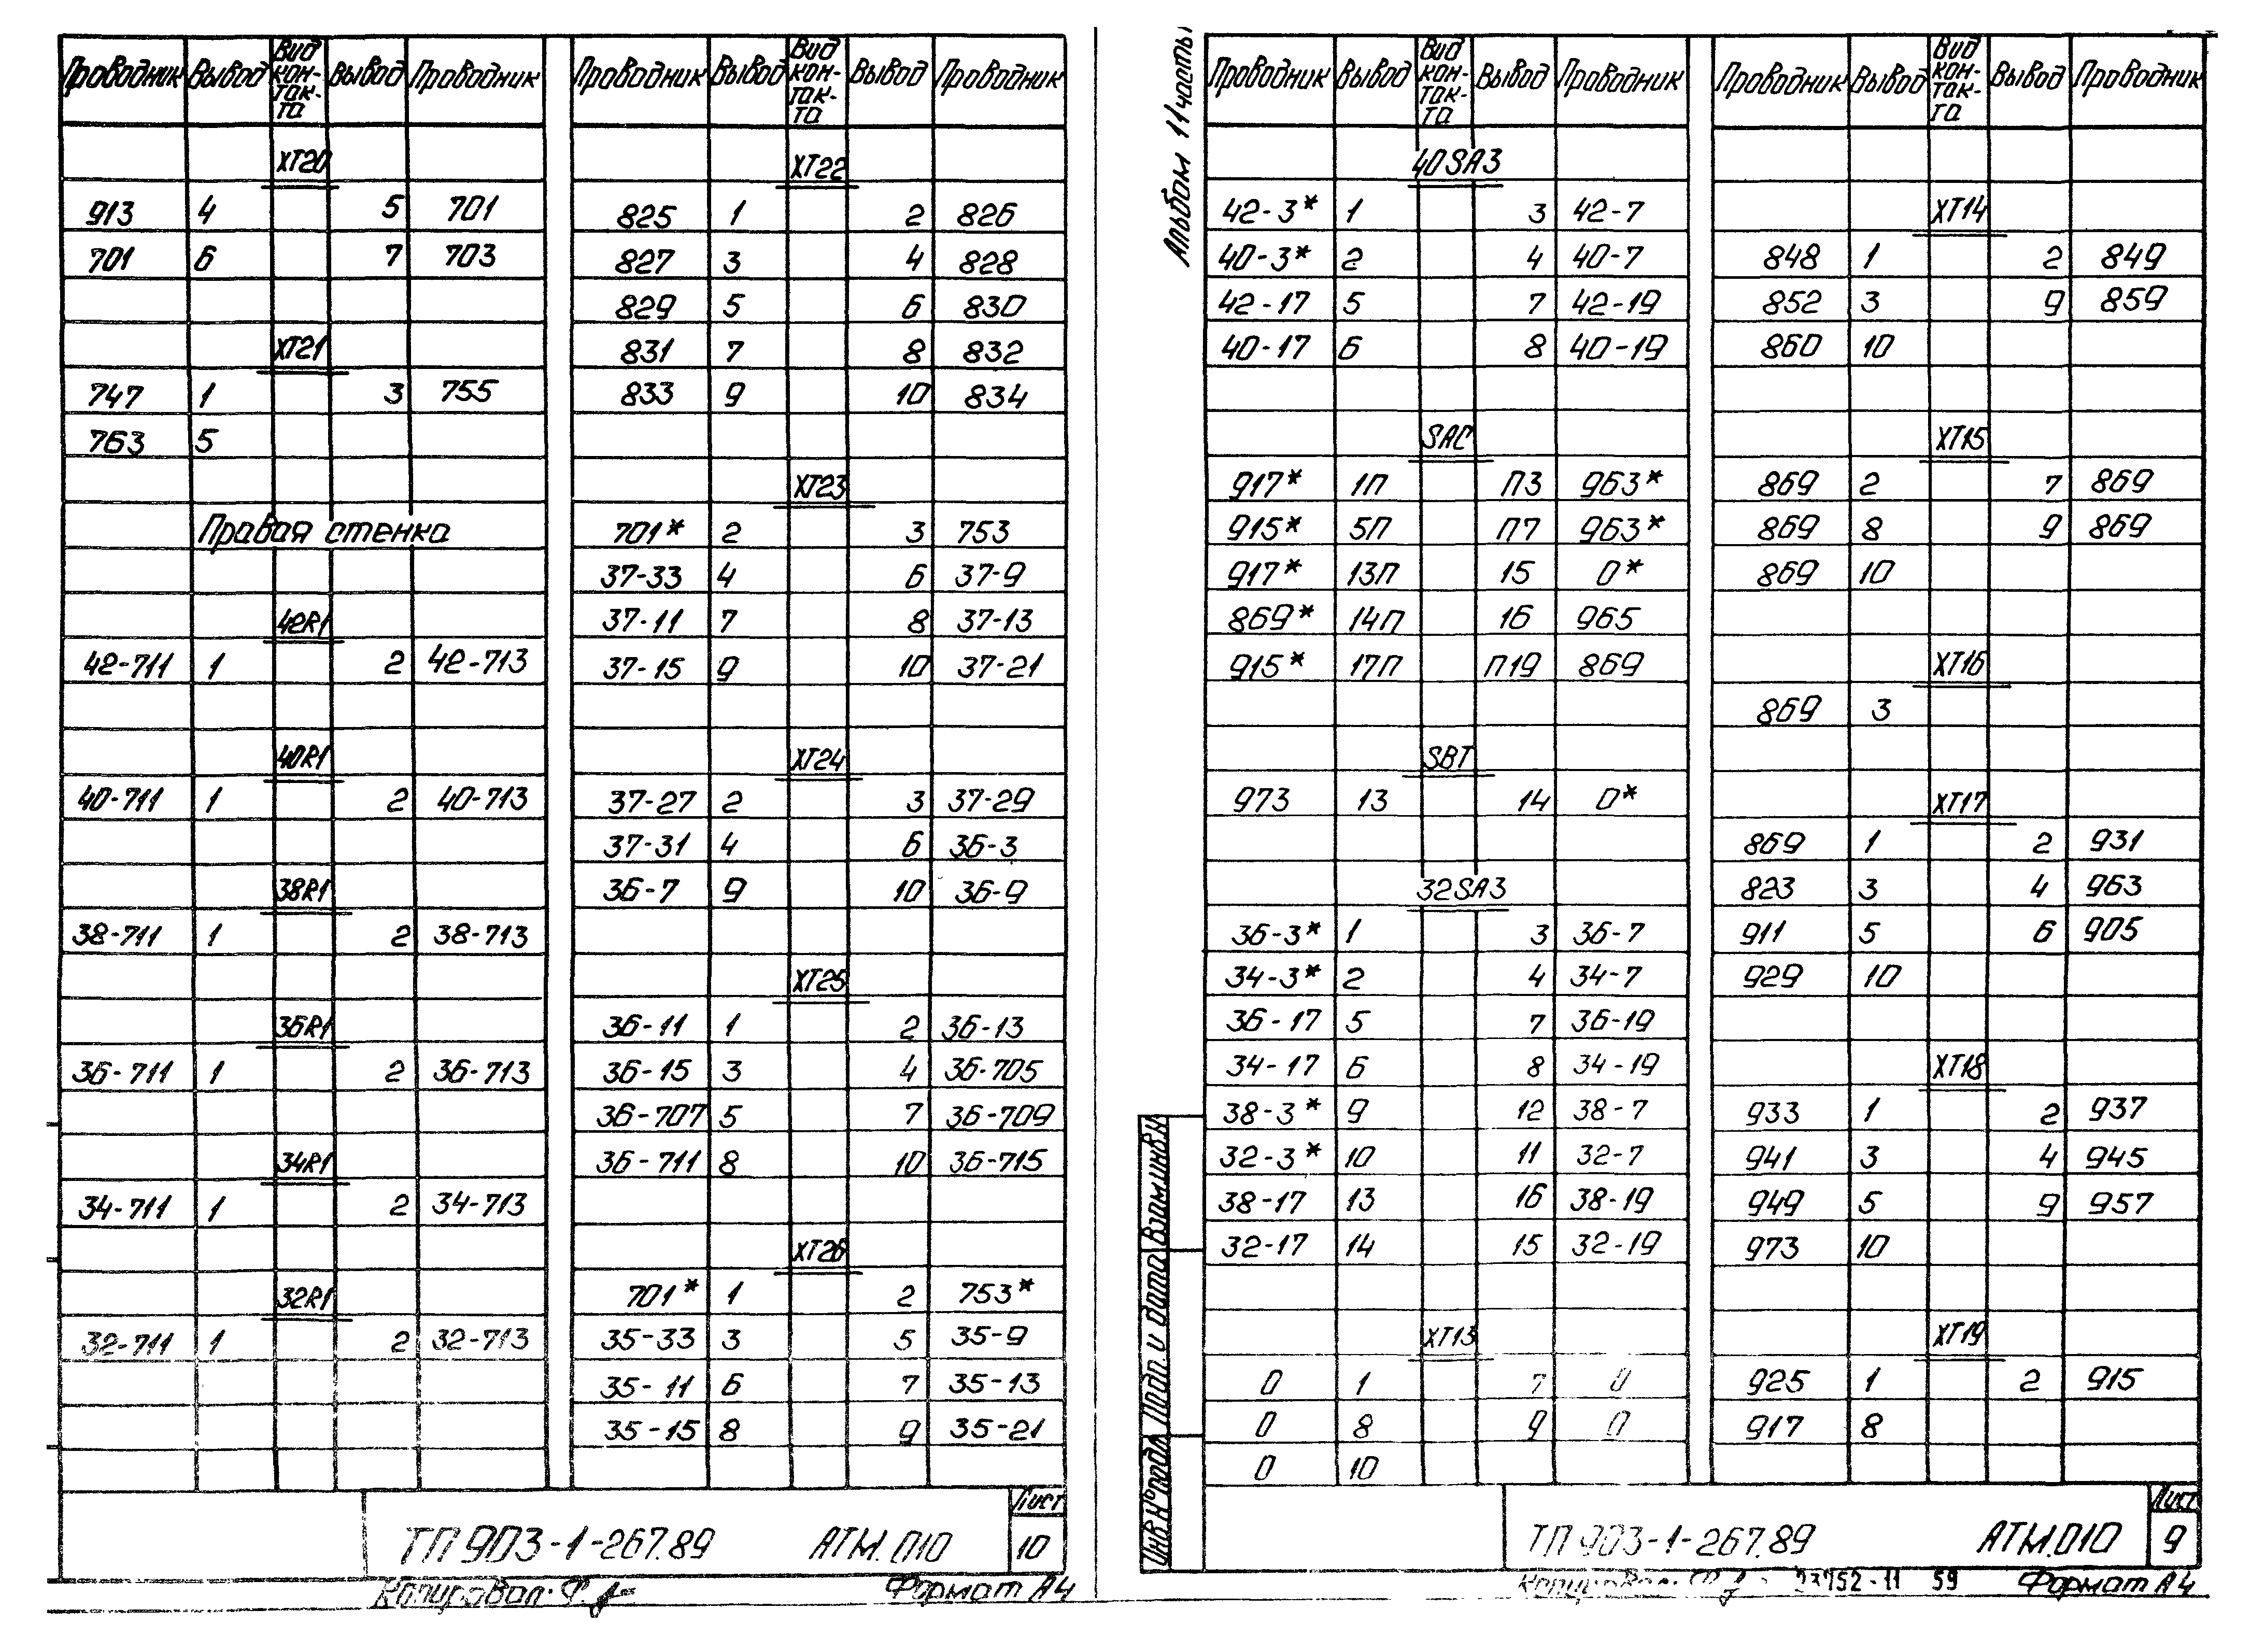 Проводник Вывод Вид кон-так-та Вывод Проводник
XT20
913 4 5 701
701 6 7 703
XT21
747 1 3 755
763 5
Правая стенка
42R1
42-711 1 2 42-713
40R1
40-711 1 2 40-713
38R1
38-711 1 2 38-713
36R1
36-711 1 2 36-713
34R1
34-711 1 2 34-713
32R1
32-711 1 2 32-713
Проводник Вывод Вид кон-так-та Вывод Проводник
XT22
825 1 2 826
827 3 4 828
829 5 6 830
831 7 8 832
833 9 10 834
XT23
701* 2 3 753
37-33 4 6 37-9
37-11 7 8 37-13
37-15 9 10 37-21
XT24
37-27 2 3 37-29
37-31 4 6 36-3
36-7 9 10 36-9
XT25
36-11 1 2 36-13
36-15 3 4 36-705
36-707 5 7 36-709
36-711 8 10 36-715
XT26
701* 1 2 753*
35-33 3 5 35-9
35-11 6 7 35-13
35-15 8 9 35-21
ТП 903-1-267.89 АТМ.010
Лист
10
Копировал: Формат А4
Альбом 11 части
Проводник Вывод Вид кон-так-та Вывод Проводник
40SA3
42-3* 1 3 42-7
40-3* 2 4 40-7
42-17 5 7 42-19
40-17 6 8 40-19
SAC
917* 1П П3 963*
915* 5П П7 963*
917* 13П 15 0*
869* 14П 16 965
915* 17П П19 869
SBT
973 13 14 0*
32SA3
36-3* 1 3 36-7
34-3* 2 4 34-7
36-17 5 7 36-19
34-17 6 8 34-19
38-3* 9 12 38-7
32-3* 10 11 32-7
38-17 13 16 38-19
32-17 14 15 32-19
XT13
0 1 7 0
0 8 9 0
0 10
Проводник Вывод Вид кон-так-та Вывод Проводник
XT14
848 1 2 849
852 3 9 859
860 10
XT15
869 2 7 869
869 8 9 869
869 10
XT16
869 3
XT17
869 1 2 931
823 3 4 963
911 5 6 905
929 10
XT18
933 1 2 937
941 3 4 945
949 5 9 957
973 10
XT19
925 1 2 915
917 8
Инв.№ подл. Подп. и дата Взам.инв.№
ТП 903-1-267.89 АТМ.010
Лист
9
Копировал: 23752-11 59 Формат А4